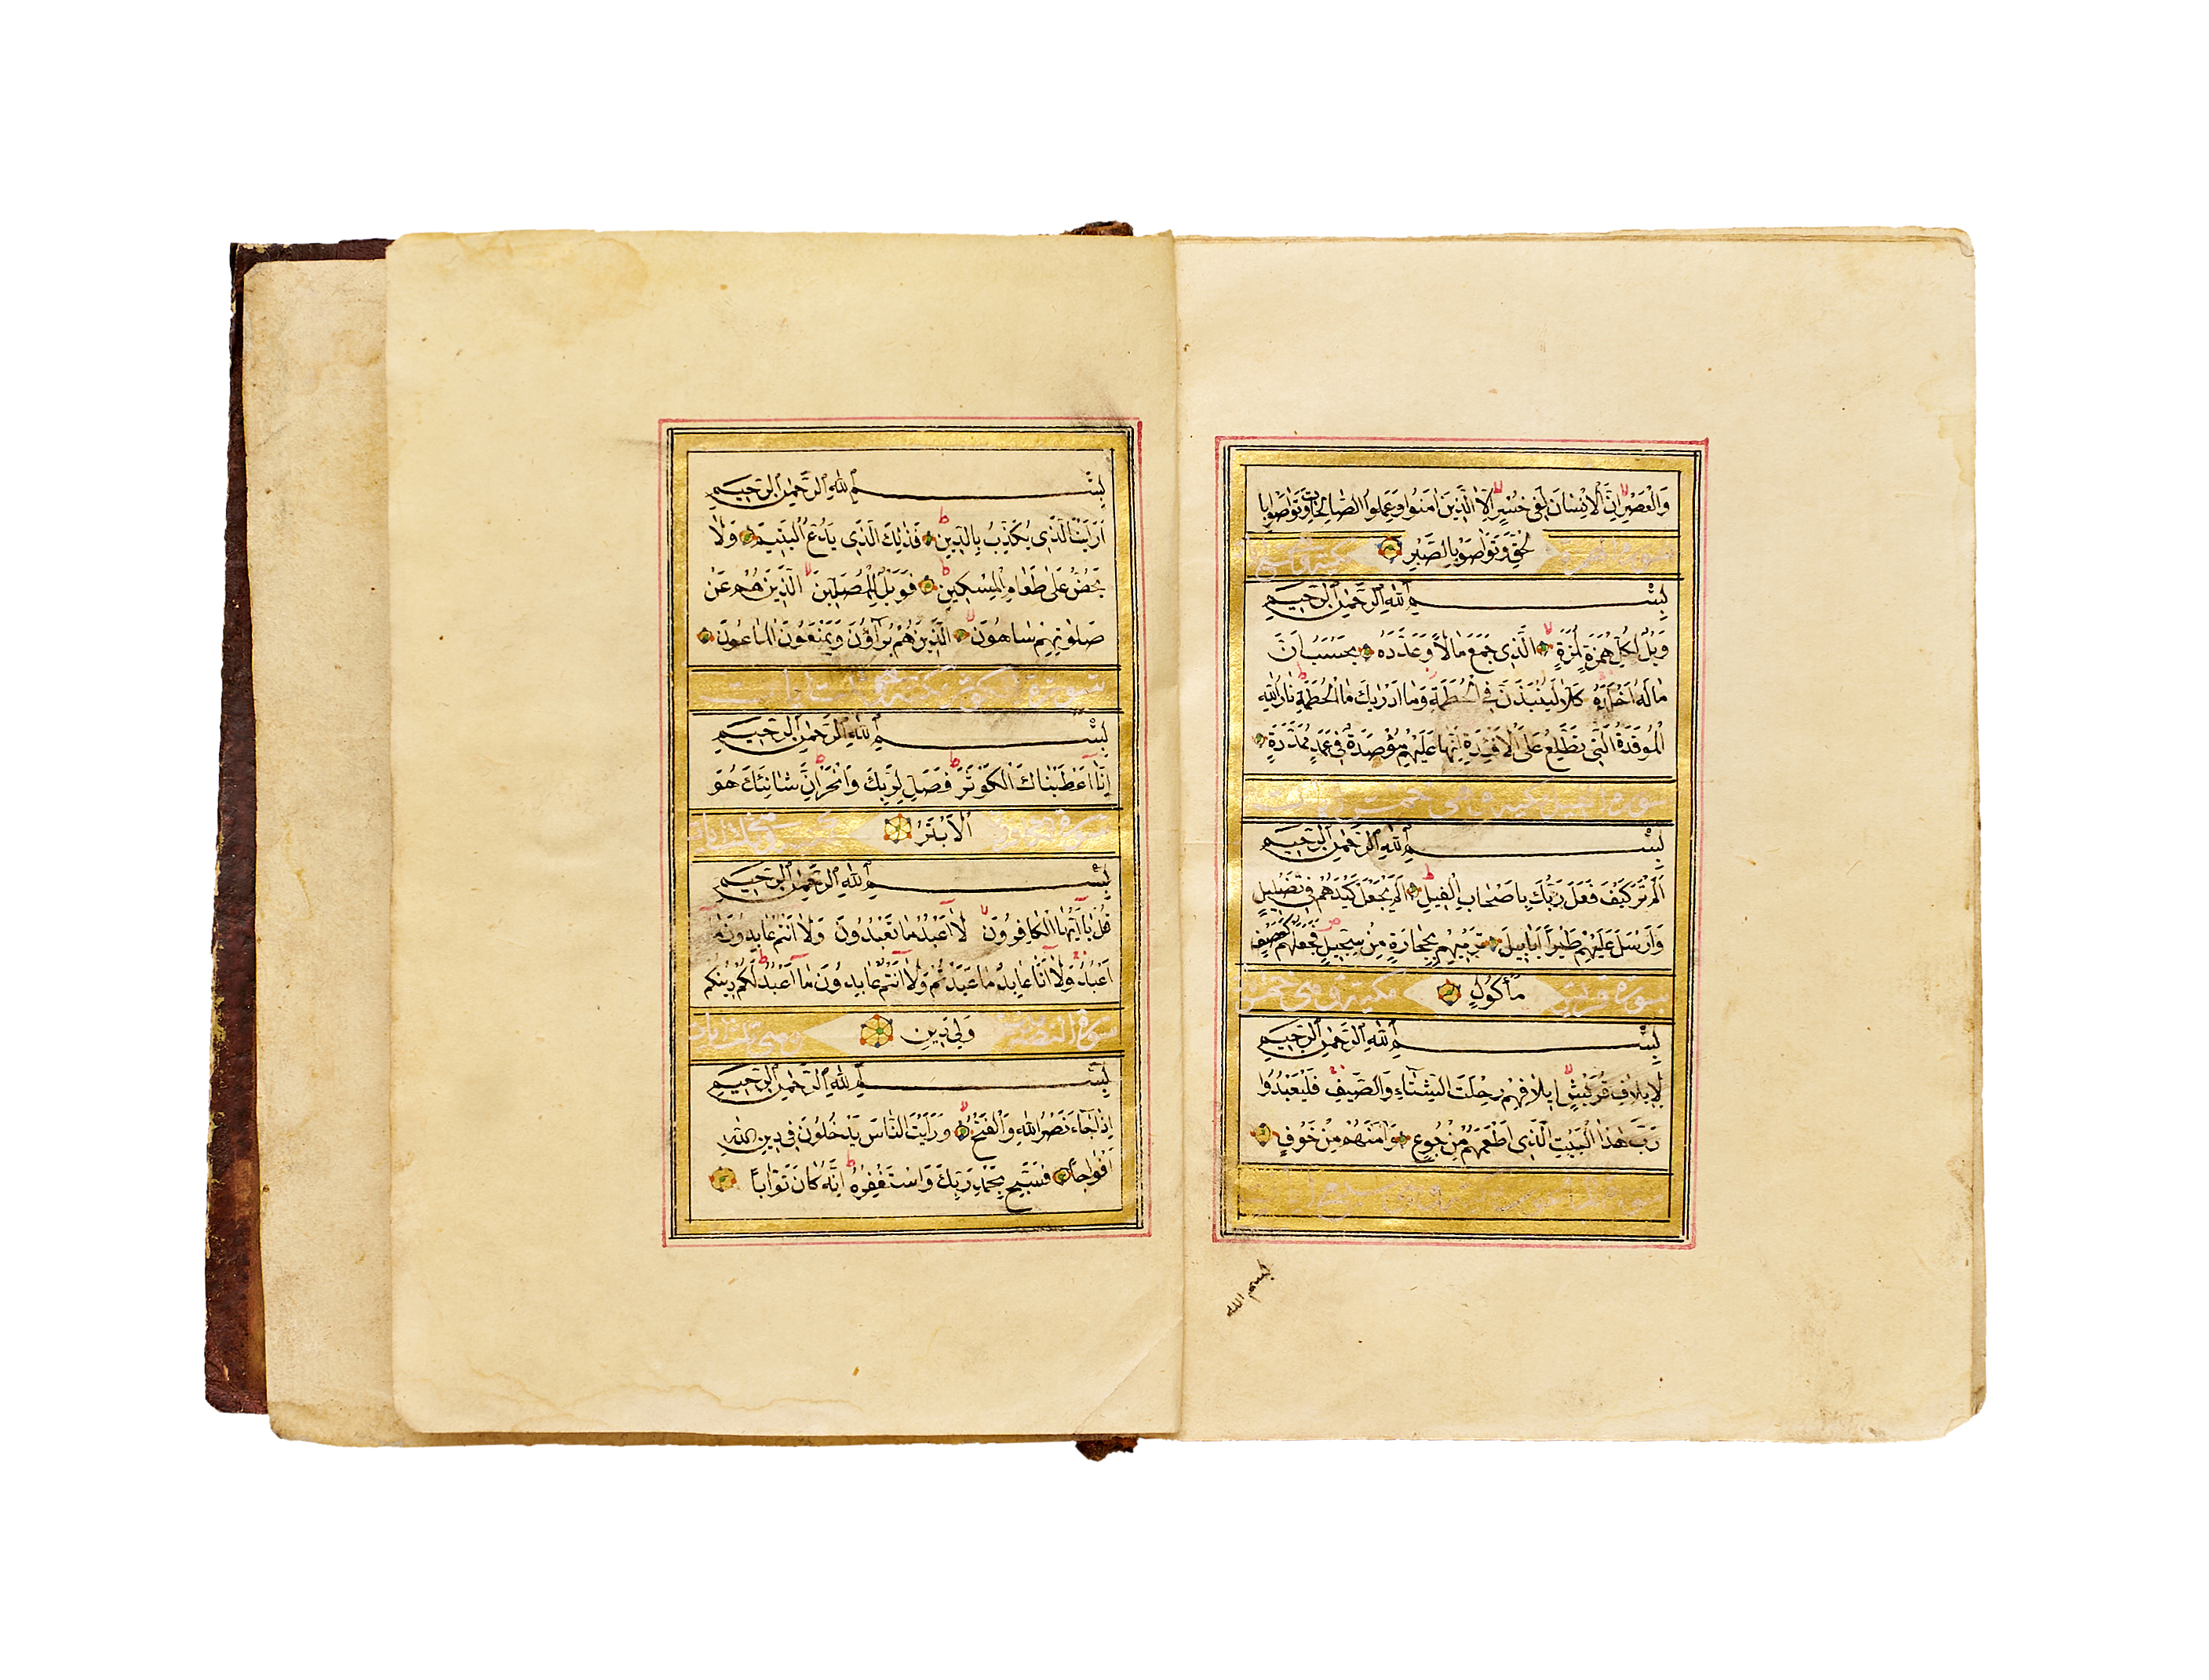 وَالْعَصْرِ اِنَّ الْاِنْسَانَ لَفِى خُسْرٍ اِلَّا الَّذِينَ اٰمَنُوا وَعَمِلُوا الصَّالِحَاتِ وَتَوَاصَوْا بِا
لْحَقِّ وَتَوَاصَوْا بِالصَّبْرِ
بِسْمِ اللهِ الرَّحْمٰنِ الرَّحِيمِ
وَيْلٌ لِكُلِّ هُمَزَةٍ لُمَزَةٍ الَّذِى جَمَعَ مَالًا وَعَدَّدَهُ يَحْسَبُ اَنَّ
مَالَهُ اَخْلَدَهُ كَلَّا لَيُنْبَذَنَّ فِى الْحُطَمَةِ وَمَا اَدْرٰيكَ مَا الْحُطَمَةُ نَارُ اللهِ
الْمُوقَدَةُ الَّتِى تَطَّلِعُ عَلَى الْاَفْئِدَةِ اِنَّهَا عَلَيْهِمْ مُؤْصَدَةٌ فِى عَمَدٍ مُمَدَّدَةٍ
سورة الفيل
بِسْمِ اللهِ الرَّحْمٰنِ الرَّحِيمِ
اَلَمْ تَرَ كَيْفَ فَعَلَ رَبُّكَ بِاَصْحَابِ الْفِيلِ اَلَمْ يَجْعَلْ كَيْدَهُمْ فِى تَضْلِيلٍ
وَاَرْسَلَ عَلَيْهِمْ طَيْرًا اَبَابِيلَ تَرْمِيهِمْ بِحِجَارَةٍ مِنْ سِجِّيلٍ فَجَعَلَهُمْ كَعَصْفٍ
سورة قريش مَأْكُولٍ مكية
بِسْمِ اللهِ الرَّحْمٰنِ الرَّحِيمِ
لِاِيلَافِ قُرَيْشٍ اِيلَافِهِمْ رِحْلَتَ الشِّتَاءِ وَالصَّيْفِ فَلْيَعْبُدُوا
رَبَّ هٰذَا الْبَيْتِ الَّذِى اَطْعَمَهُمْ مِنْ جُوعٍ وَاٰمَنَهُمْ مِنْ خَوْفٍ
بسم الله
بِسْمِ اللهِ الرَّحْمٰنِ الرَّحِيمِ
اَرَاَيْتَ الَّذِى يُكَذِّبُ بِالدِّينِ فَذٰلِكَ الَّذِى يَدُعُّ الْيَتِيمَ وَلَا
يَحُضُّ عَلَى طَعَامِ الْمِسْكِينِ فَوَيْلٌ لِلْمُصَلِّينَ الَّذِينَ هُمْ عَنْ
صَلٰوتِهِمْ سَاهُونَ الَّذِينَ هُمْ يُرَاؤُنَ وَيَمْنَعُونَ الْمَاعُونَ
سورة الكوثر مكية
بِسْمِ اللهِ الرَّحْمٰنِ الرَّحِيمِ
اِنَّا اَعْطَيْنَاكَ الْكَوْثَرَ فَصَلِّ لِرَبِّكَ وَانْحَرْ اِنَّ شَانِئَكَ هُوَ
الْاَبْتَرُ
بِسْمِ اللهِ الرَّحْمٰنِ الرَّحِيمِ
قُلْ يَا اَيُّهَا الْكَافِرُونَ لَا اَعْبُدُ مَا تَعْبُدُونَ وَلَا اَنْتُمْ عَابِدُونَ مَا
اَعْبُدُ وَلَا اَنَا عَابِدٌ مَا عَبَدْتُمْ وَلَا اَنْتُمْ عَابِدُونَ مَا اَعْبُدُ لَكُمْ دِينُكُمْ
سورة النصر وَلِىَ دِينِ
بِسْمِ اللهِ الرَّحْمٰنِ الرَّحِيمِ
اِذَا جَاءَ نَصْرُ اللهِ وَالْفَتْحُ وَرَاَيْتَ النَّاسَ يَدْخُلُونَ فِى دِينِ اللهِ
اَفْوَاجًا فَسَبِّحْ بِحَمْدِ رَبِّكَ وَاسْتَغْفِرْهُ اِنَّهُ كَانَ تَوَّابًا